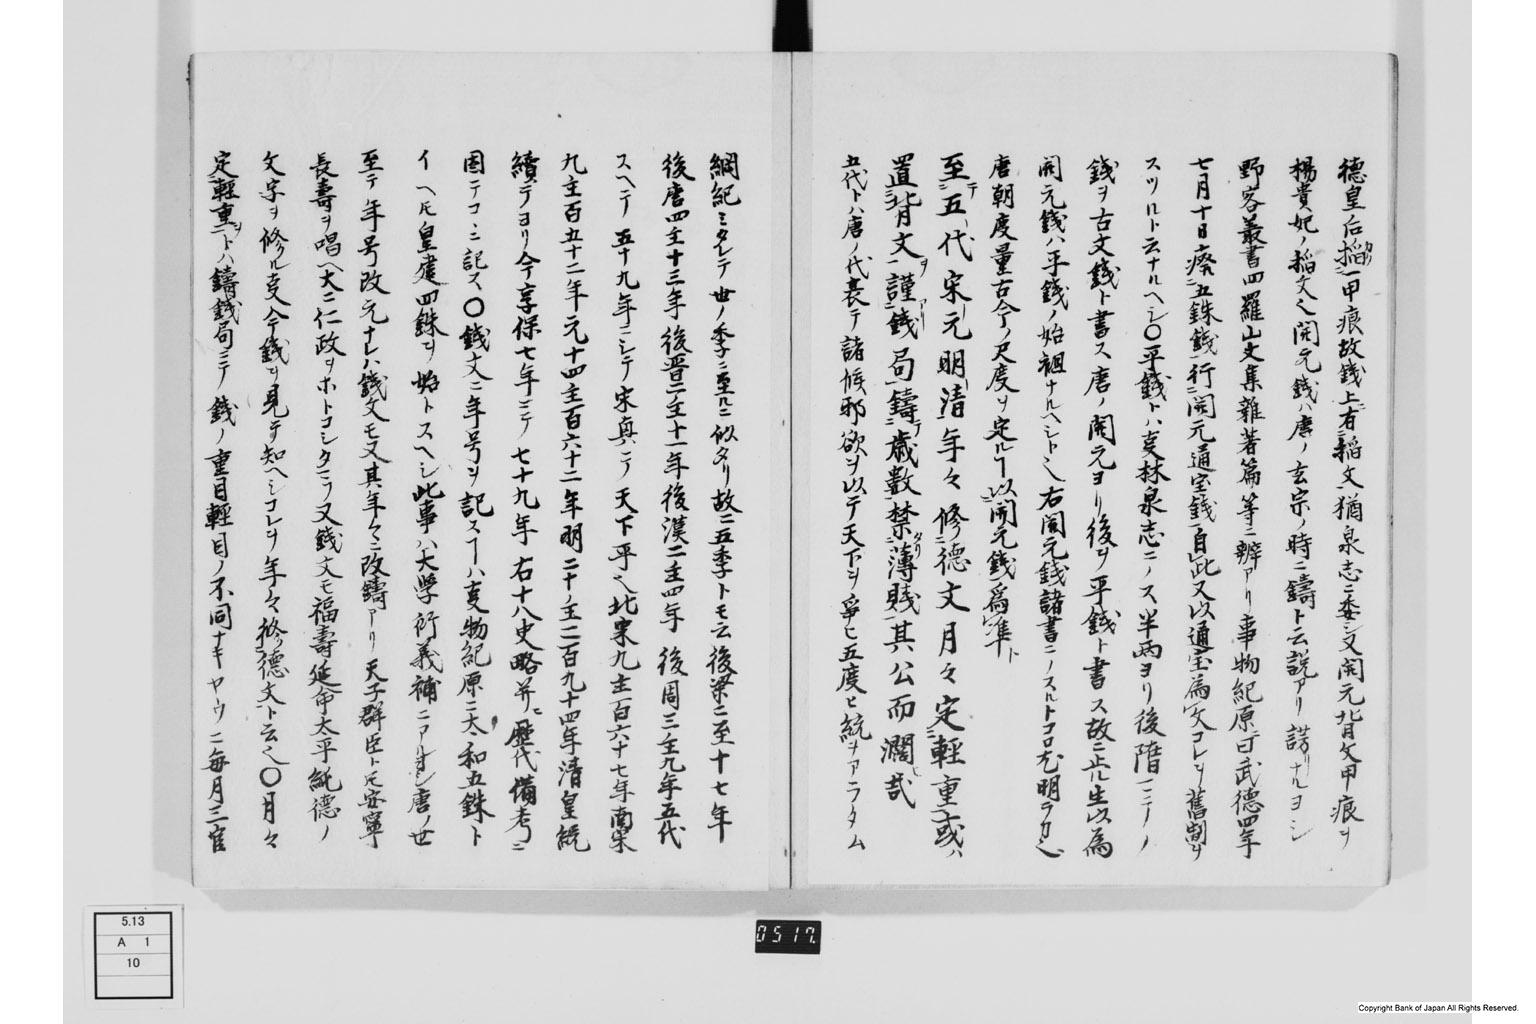 德皇后搯一甲痕故錢上有搯文猶泉志ニ委シ又開元背文甲痕ヲ
楊貴妃ノ搯文ヘ開元錢ハ唐ノ玄宗ノ時ニ鑄ト云說アリ謬ナルヨシ
野客叢書四羅山文集雜著篇等ニ辨アリ事物紀原曰武德四年
七月十日廢五銖錢行開元通宝錢自此又以通宝為文コレヲ舊制ヲ
スツルト云ナルヘシ〇平錢トハ夏林泉志ニノス半両ヨリ後隋ニテノ
錢ヲ古文錢ト書ス唐ノ開元ヨリ後ヲ平錢ト書ス故ニ此生以為
開元錢ハ平錢ノ始祖ナルヘシト也右開元錢諸書ニノスルトコロ尤明ラカ也
唐朝度量古今ノ尺度ヲ定ルヿ以開元錢為準ト
至テ五代宋元明清年々修德文月々定輕重或ハ
置背文ヲ謹錢局鑄テ歲數禁薄賤其公而濶哉
五代トハ唐ノ代衰テ諸候邪欲ヲ以テ天下ヲ爭ヒ五度ヒ統ヲアラタム
綱紀ミタレテ世ノ季ニ至ルニ似タリ故ニ五季トモ云後梁二至十七年
後唐四主十三年後晋二主十一年後漢二主四年後周三主九年五代
スヘテ五十九年ニシテ宋真ニテ天下平也北宋九主一百六十七年南宋
九主百五十二年元十四主百六十二年明二十主二百九十四年清皇統
續テヨリ今享保七年ニテ七十九年右十八史略并ニ歷代備考ニ
因テコヽニ記ス〇錢文ニ年号ヲ記スヿハ夏物紀原ニ太和五銖ト
イヘトモ皇建四銖ヲ始トスヘシ此事ハ大學衍義補ニアリ唐ノ世
至テ年号改元ナレハ錢文モ又其年々ニ改鑄アリ天子群臣トモ安寧
長壽ヲ唱ヘ大ニ仁政ヲホトコシタマフ又錢文モ福壽延命太平純德ノ
文字ヲ修ル夏今錢ヲ見テ知ヘシコレヲ年々修德文ト云也〇月々
定輕重トハ鑄錢局ニテ錢ノ重目輕目ノ不同ナキヤウニ每月三官
5.13
A 1
10
0517.
Copyright Bank of Japan All Rights Reserved.